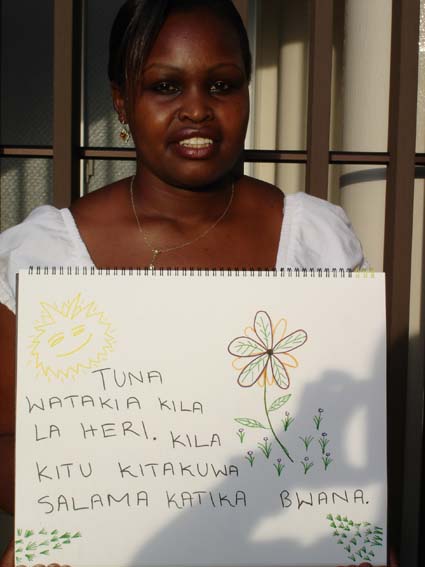 TUNA
WATAKIA KILA
LA HERI. KILA
KITU KITAKUWA
SALAMA KATIKA BWANA.